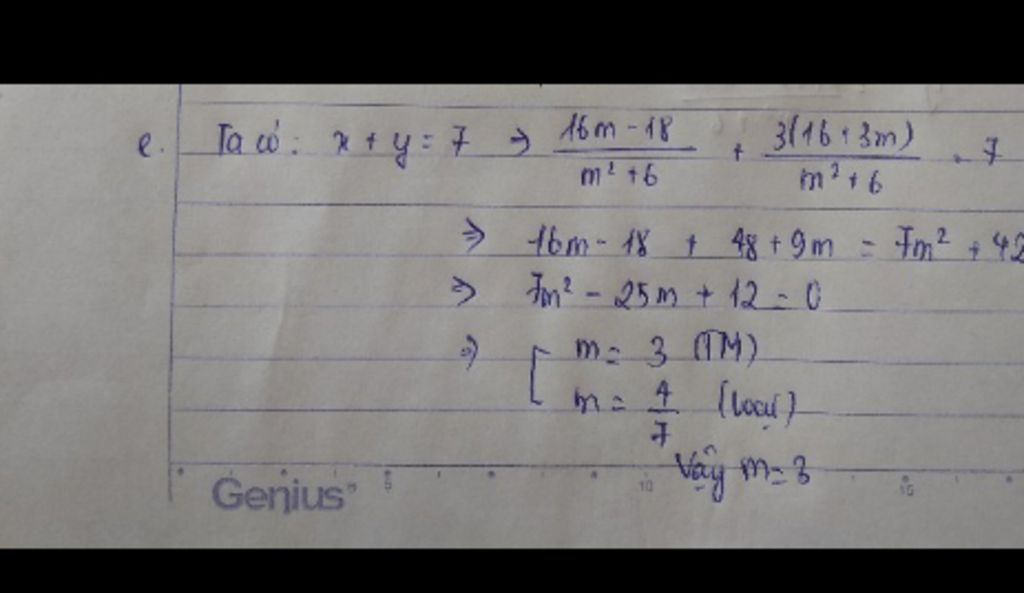 e. Ta có: x + y = 7 => (16m - 18)/(m² + 6) + 3(16 + 3m)/(m² + 6) = 7
=> 16m - 18 + 48 + 9m = 7m² + 42
=> 7m² - 25m + 12 = 0
=> [ m = 3 (TM)
m = 4/7 (loại)
Vậy m = 3
5 10 15
Genius